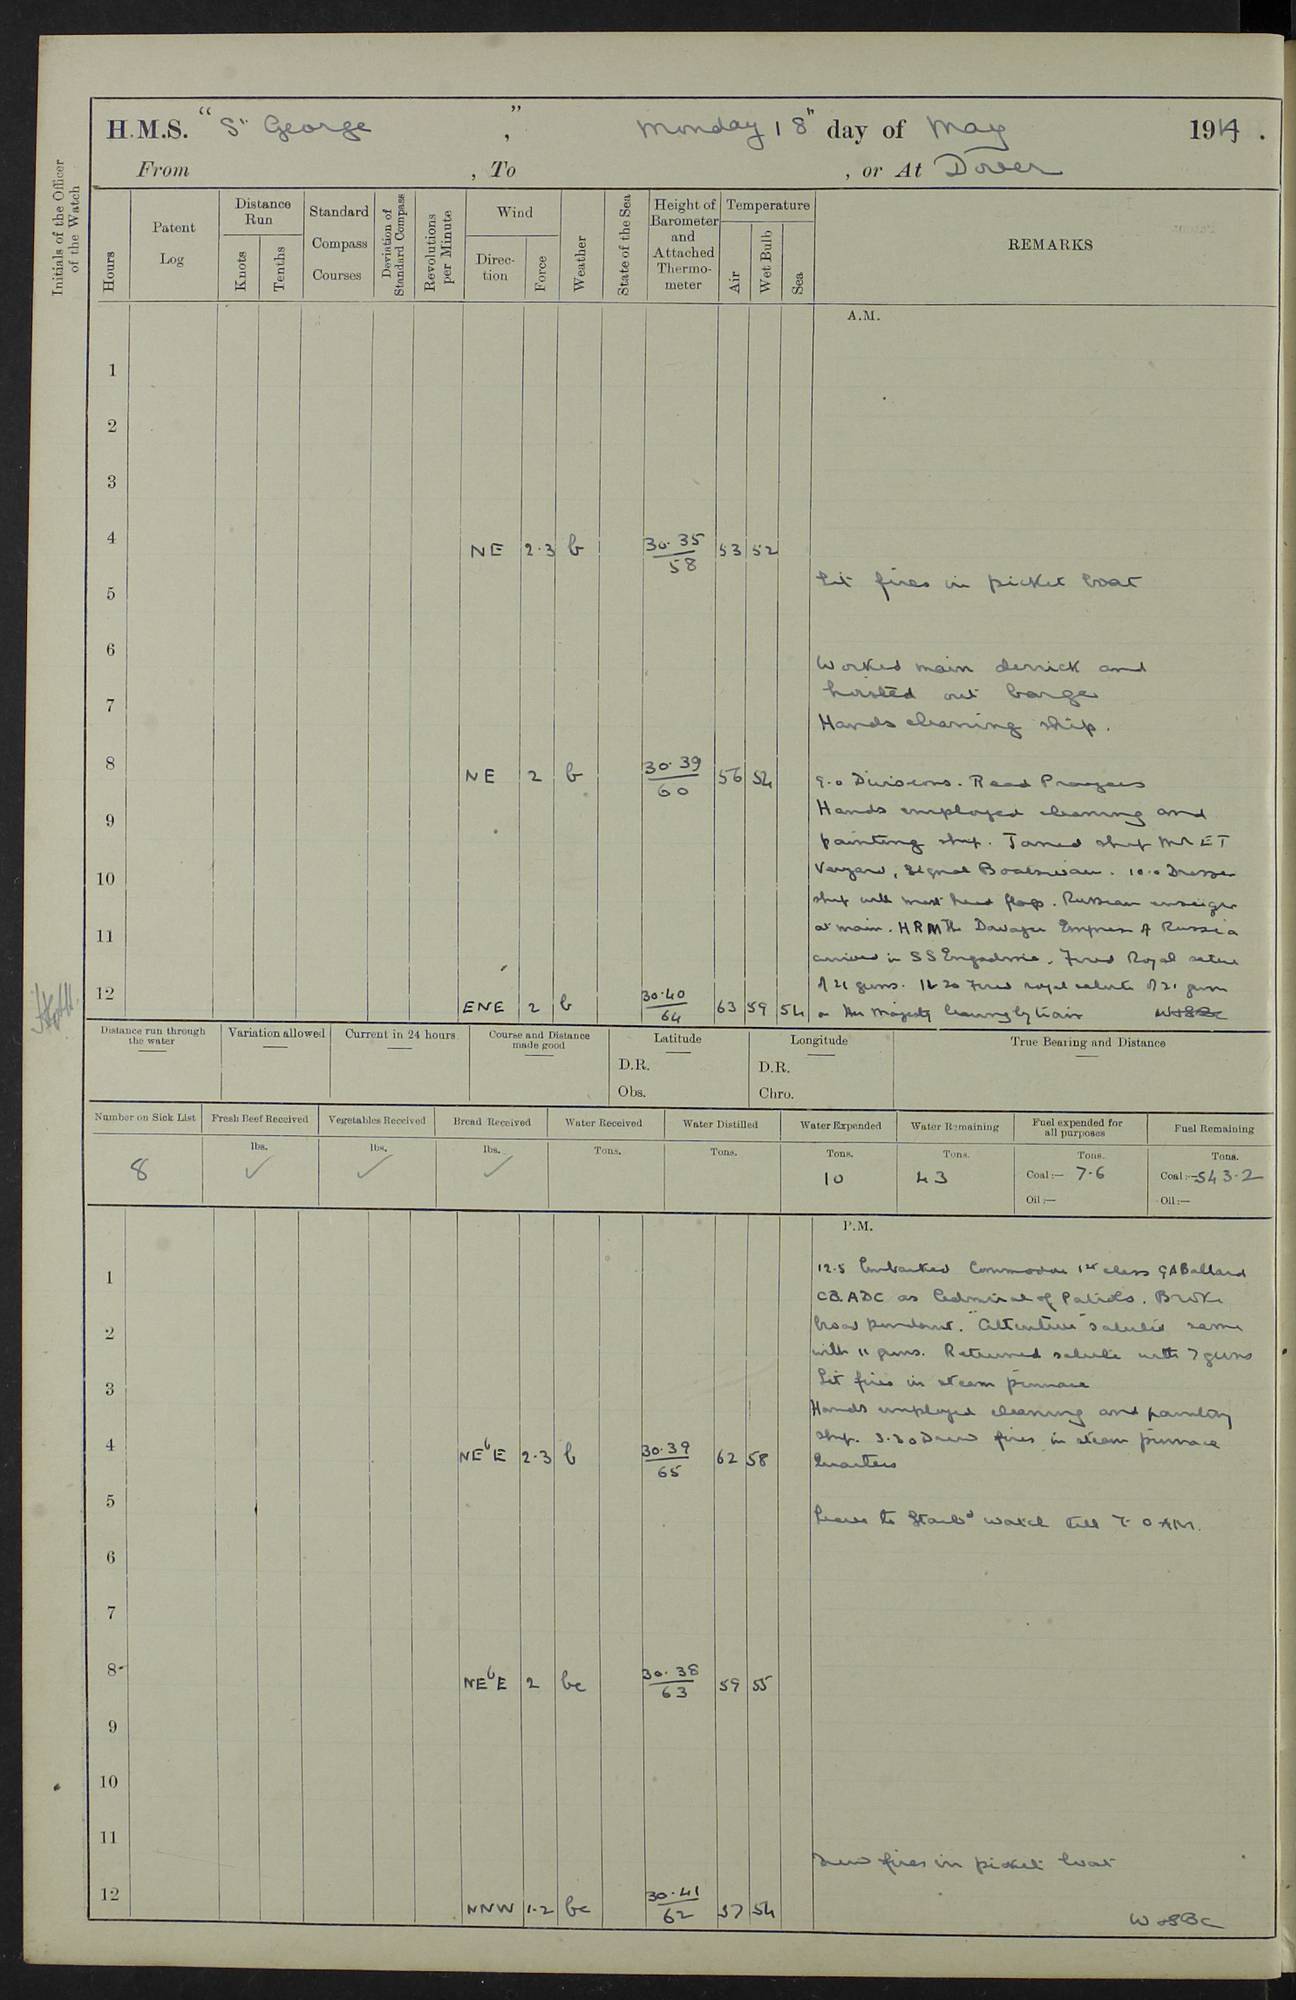 H.M.S. "St George", Monday 18th day of May 1914.
From , To , or At Dover
Initials of the Officer of the Watch
Hours
Patent Log
Distance Run
Knots
Tenths
Standard Compass Courses
Deviation of Standard Compass
Revolutions per Minute
Wind
Direction
Force
Weather
State of the Sea
Height of Barometer and Attached Thermometer
Temperature
Air
Wet Bulb
Sea
REMARKS
A.M.
1
2
3
4 NE 2.3 b 30.35/58 53 52
Lit fires in picket boat
5
6
Worked main derrick and
hoisted out barge
7
Hands cleaning ship.
8 NE 2 b 30.39/60 56 54
9.0 Divisions. Read Prayers
Hands employed cleaning and
9
painting ship. Joined ship Mr E T
Signal Boatswain. 10.0 Dressed
10
ship with mast head flags. Russian ensign
at main. HRM The Dowager Empress of Russia
11
arrived in SS Engadine. Fired Royal salute
of 21 guns. 11.20 Fired royal salute of 21 guns
12 ENE 2 b 30.40/64 63 59 54
on Her Majesty leaving by train
Distance run through the water
Variation allowed
Current in 24 hours
Course and Distance made good
Latitude
D.R.
Obs.
Longitude
D.R.
Chro.
True Bearing and Distance
Number on Sick List
Fresh Beef Received
Vegetables Received
Bread Received
Water Received
Water Distilled
Water Expended
Water Remaining
Fuel expended for all purposes
Fuel Remaining
8
lbs. ✓
lbs. ✓
lbs. ✓
Tons.
Tons.
Tons. 10
Tons. 43
Tons. Coal:— 7.6
Oil:—
Tons. Coal:— 543.2
Oil:—
P.M.
12.5 Embarked Commodore 1st class G A Ballard
1
CB ADC as Admiral of Patrols. Broke
broad pendant. "Attentive" saluted same
2
with 11 guns. Returned salute with 7 guns
Lit fires in steam pinnace
3
Hands employed cleaning and painting
ship. 3.30 Drew fires in steam pinnace
4 NEbE 2.3 b 30.39/65 62 58
Quarters
5
Leave to Starbd watch till 7.0 AM.
6
7
8 NEbE 2 bc 30.38/63 59 55
9
10
11
Drew fires in picket boat
12 NNW 1.2 bc 30.41/62 57 54